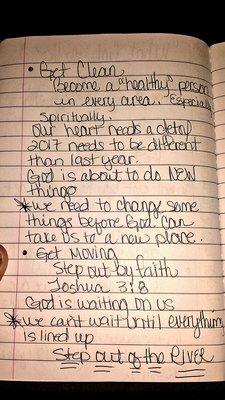 • Get Clean
Become a "healthy" person
in every area. *Especially
spiritually.
Our heart needs a detox
2017 needs to be different
than last year.
God is about to do NEW
things
*we need to change some
things before God can
take us to a new place.
• Get Moving
Step out by faith
Joshua 3:8
God is waiting on us
*we can't wait until everything
is lined up
Step out of the River